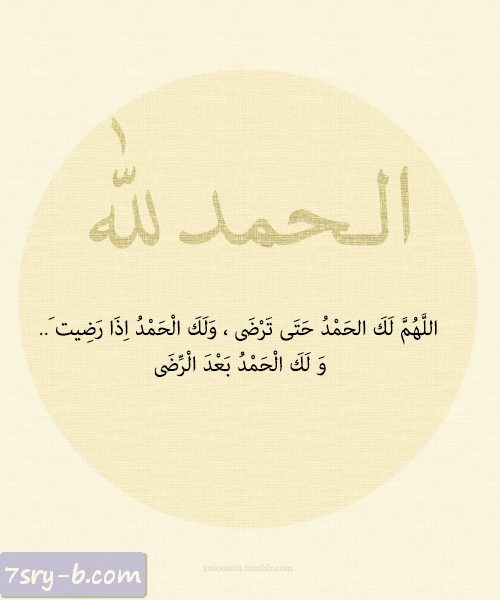 الحمد لله
اللَّهُمَّ لَكَ الحَمْدُ حَتَى تَرْضَى ، وَلَكَ الْحَمْدُ اِذَا رَضِيت َ..
وَ لَكَ الْحَمْدُ بَعْدَ الْرِّضَى
7sry-b.com
smounita.tumblr.com